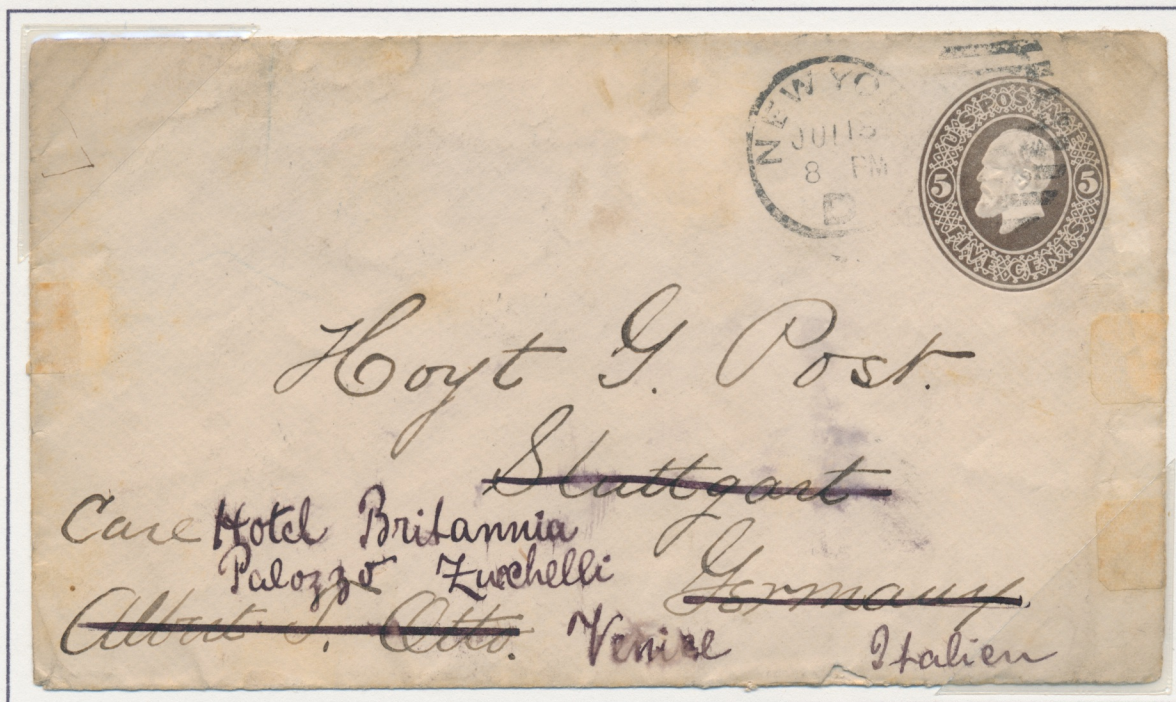 NEW YO
JUL 15
8 PM
D
U.S. POSTAGE
5 5
FIVE CENTS
Hoyt G. Post.
Stuttgart
Care Hotel Britannia
Palozzo Zucchelli
Germany.
Albert S. Otto.
Venise Italien